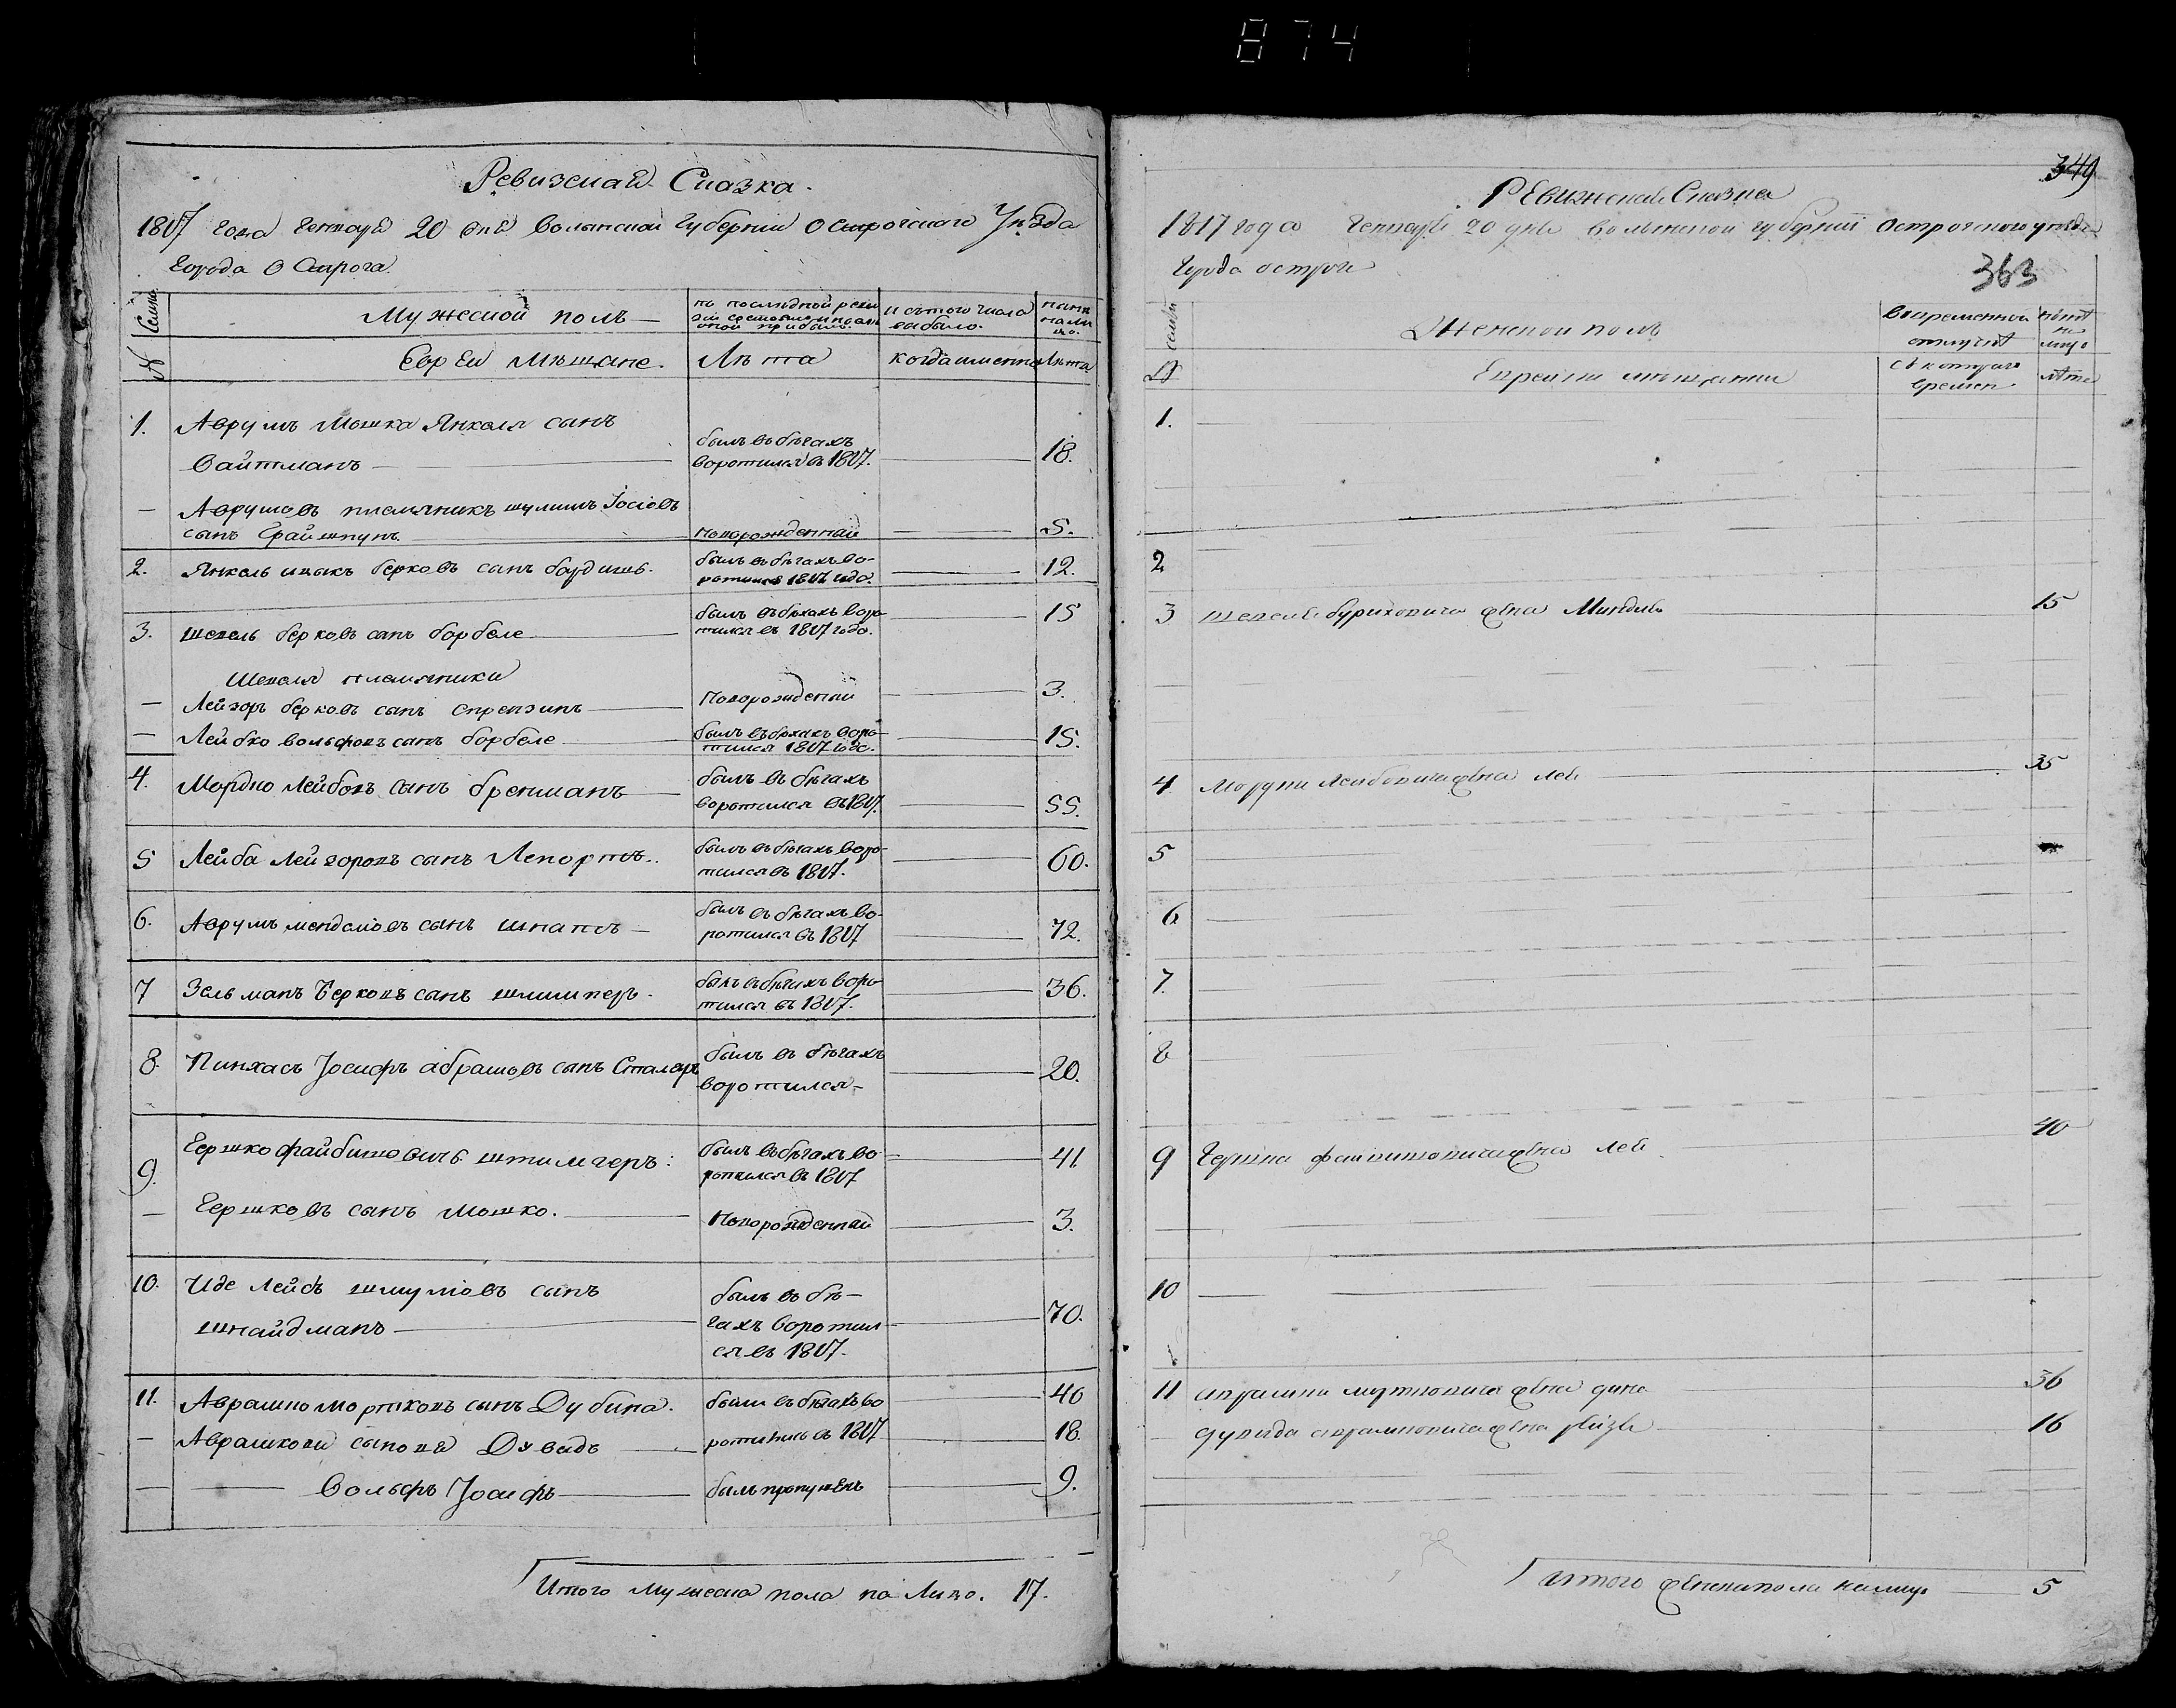 874
Ревизская Сказка.
1817 года Генваря 20 дня Волынской Губернии Острогского Уѣзда
Города Острога.
№ Семьи
Мужеской полъ
по последной реви
зіи состояло и после
оной прибыло.
изъ того числа
выбыло.
нынѣ
на ли
цо.
Евреи Мѣщане.
Лѣта
когда именно
Лѣта
1. Аврумъ Мошка Янкеля сынъ
Вайтманъ
былъ въ бѣгахъ
воротился въ 1817.
18.
Аврумовъ племянникъ шулимъ Іосіовъ
сынъ
новорожденный
5.
2. Янкель ицыкъ берковъ сынъ
былъ въ бѣгахъ во-
ротился 1817 года.
12.
3. шепсель берковъ сынъ борбеле
былъ въ бѣгахъ воро
тился въ 1817 годо.
15
Шепселя племянники
Лейзоръ берковъ сынъ
новорожденный
3.
Лейбко вольфовъ сынъ борбеле
былъ въ бѣгахъ воро-
тился 1817 годо.
15.
4. Мордко Лейбовъ сынъ бренманъ
былъ въ бѣгахъ
воротился въ 1817.
55.
5 Лейба Лейзоровъ сынъ Лепортъ.
былъ въ бѣгахъ воро-
тился въ 1817.
60.
6. Аврумъ менделіовъ сынъ
былъ въ бѣгахъ во-
ротился въ 1817
72.
7 Зельманъ Берковъ сынъ
былъ въ бѣгахъ воро-
тился въ 1817.
36.
8. Пинхасъ Іосифъ абрамовъ сынъ Столяръ
былъ въ бѣгахъ
воротился-
20.
9. Гершко файбишовичъ штилигеръ:
былъ въ бѣгахъ во-
ротился въ 1817
41
Гершковъ сынъ Мошко.
новорожденный
3.
10. Иде Лейбъ шмуліовъ сынъ
шнайдманъ
былъ въ бѣ-
гахъ воротил
ся въ 1817.
70.
11. Аврашко мортковъ сынъ Дубина.
были въ бѣгахъ во
40
Аврашкови сыновя Дувидъ
ротились въ 1817
18.
Вольфъ Іосифъ
былъ пропущенъ
9.
Итого мужеска пола на Лицо. 17.
349
Ревижская Сказка
1817 года Генваря 20 дня Волынской губерніи Острогского уѣзда
Города острога
363
№ семьи
Женской полъ
во временной
отлучкѣ
нынѣ
на
лицо
Еврейки мѣщанки
съ котораго
времен
лѣта
1.
2
3 шепселя жена Миндля 15
4 Мордки Лейбовича жена Лея 35
5
6
7.
8
9 Гершка файбишовича жена Лея 40
10
11 аврашки мортковича жена 36
дувида аврашковича жена 16
итого женска пола налицо 5